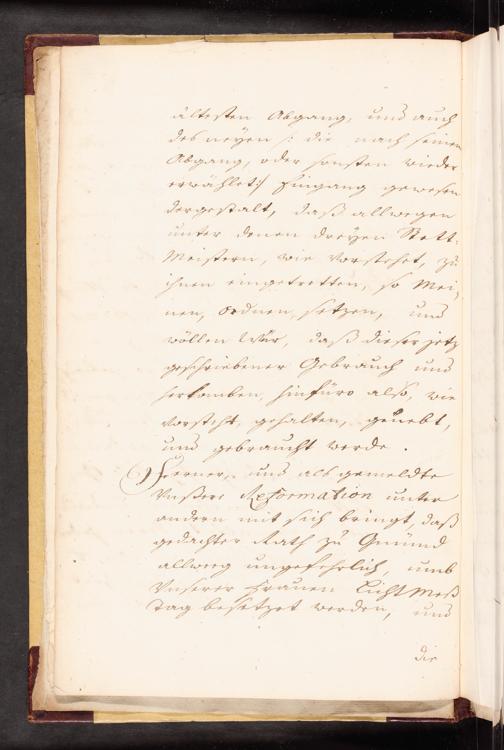 ältesten Abgang, und auch
des neuen /: die nach seinem
Abgang, oder sonsten wieder
erwählet :/ Eingang gewesen
dergestalt, daß allwegen
unter denen dreyen Stett-
Meistern, wie vorstehet, zu
ihnen eingetretten, so mei-
nen, ordnen, setzen, und
wöllen Wür, daß dieser jetz
geschriebener Gebrauch und
herkomben, hinfüro also, wie
vorsteht, gehalten, geuebt,
und gebraucht werde.
Ferner, und als gemeldte
Unßere Reformation unter
andern mit sich bringt, daß
gedachter Rath zu Gmünd
allweeg ungefehrlich, umb
Unserer Frauen Lichtmeß
Tag besetzet werden, und
die